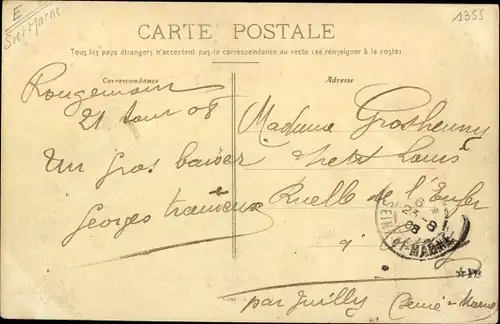 E
Seine Marne
1355
CARTE POSTALE
Tous les pays étrangers n'acceptent pas la correspondance au recto (se renseigner à la poste)
Correspondance
Rougemain
21 Aout 08
Un gros baiser
Georges
Adresse
Madame Grosheuny
chez Louis
Ruelle de l'Enfer
à
par Juilly (Seine-Marne
SEINE
6 *
23 - 8
08
MARNE